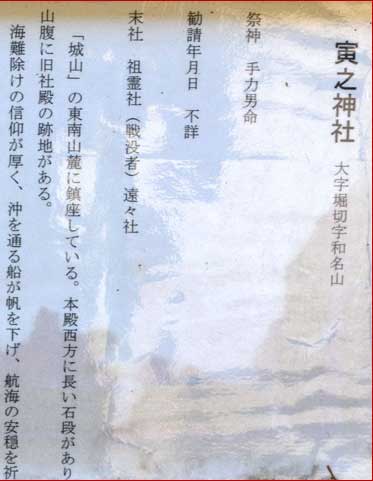 寅之神社 大字堀切字和名山
祭神 手力男命
勧請年月日 不詳
末社 祖霊社(戦没者)遠々社
「城山」の東南山麓に鎮座している。本殿西方に長い石段があり
山腹に旧社殿の跡地がある。
海難除けの信仰が厚く、沖を通る船が帆を下げ、航海の安穏を祈